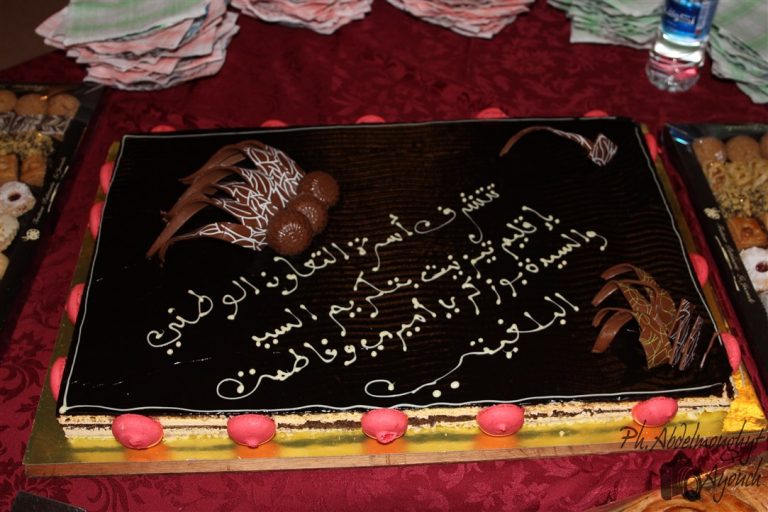 تتشرف أسرة التعاون الوطني
بإقليم تيزنيت بتكريم السيد
والسيدة بوزكر بلميرمي وفاطمة
البلفيقي
Ph.Abdelmoughyt
Ayouch